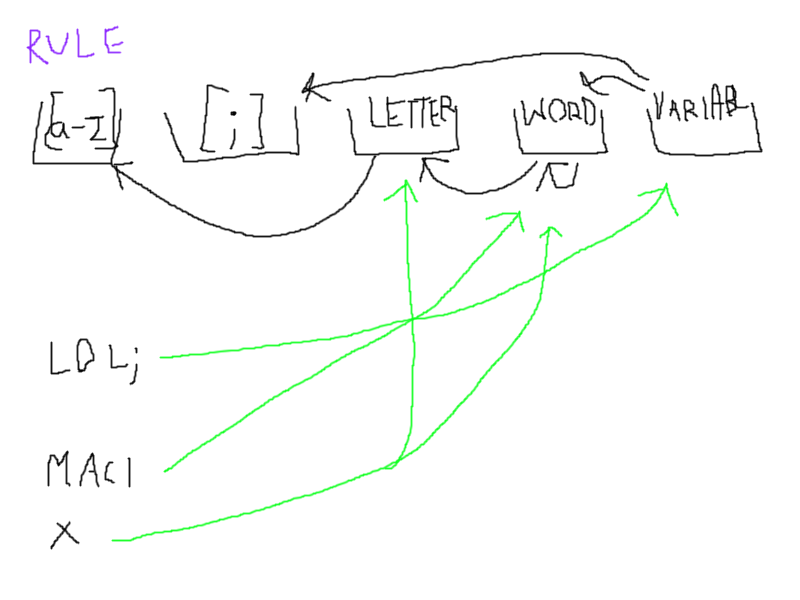 RULE
[a-z] [;] LETTER WORD VARIABL
LOL;
MACI
X